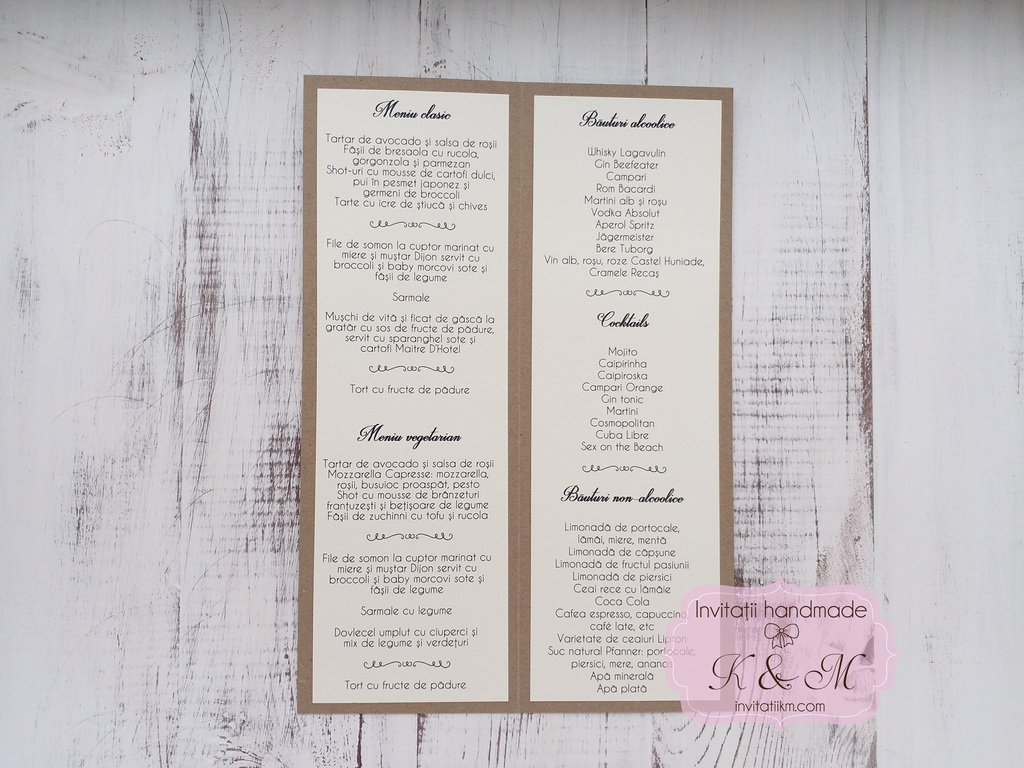 Meniu clasic
Tartar de avocado și salsa de roșii
Fâșii de bresaola cu rucola,
gorgonzola și parmezan
Shot-uri cu mousse de cartofi dulci,
pui în pesmet japonez și
germeni de broccoli
Tarte cu icre de știucă și chives
File de somon la cuptor marinat cu
miere și muștar Dijon servit cu
broccoli și baby morcovi sote și
fâșii de legume
Sarmale
Mușchi de vită și ficat de gâscă la
gratăr cu sos de fructe de pădure,
servit cu sparanghel sote și
cartofi Maitre D'Hotel
Tort cu fructe de pădure
Meniu vegetarian
Tartar de avocado și salsa de roșii
Mozzarella Capresse: mozzarella,
roșii, busuioc proaspăt, pesto
Shot cu mousse de brânzeturi
franțuzești și bețisoare de legume
Fâșii de zuchinni cu tofu și rucola
File de somon la cuptor marinat cu
miere și muștar Dijon servit cu
broccoli și baby morcovi sote și
fâșii de legume
Sarmale cu legume
Dovlecel umplut cu ciuperci și
mix de legume și verdețuri
Tort cu fructe de pădure
Băuturi alcoolice
Whisky Lagavulin
Gin Beefeater
Campari
Rom Bacardi
Martini alb și roșu
Vodka Absolut
Aperol Spritz
Jägermeister
Bere Tuborg
Vin alb, roșu, roze Castel Huniade,
Cramele Recaș
Cocktails
Mojito
Caipirinha
Caipiroska
Campari Orange
Gin tonic
Martini
Cosmopolitan
Cuba Libre
Sex on the Beach
Băuturi non-alcoolice
Limonadă de portocale,
lămâi, miere, mentă
Limonadă de căpșune
Limonadă de fructul pasiunii
Limonadă de piersici
Ceai rece cu lămâie
Coca Cola
Cafea espresso, capuccino,
café late, etc
Varietate de ceaiuri Lipton
Suc natural Pfanner: portocale,
piersici, mere, ananas
Apă minerală
Apă plată
Invitații handmade
K & M
invitatiikm.com